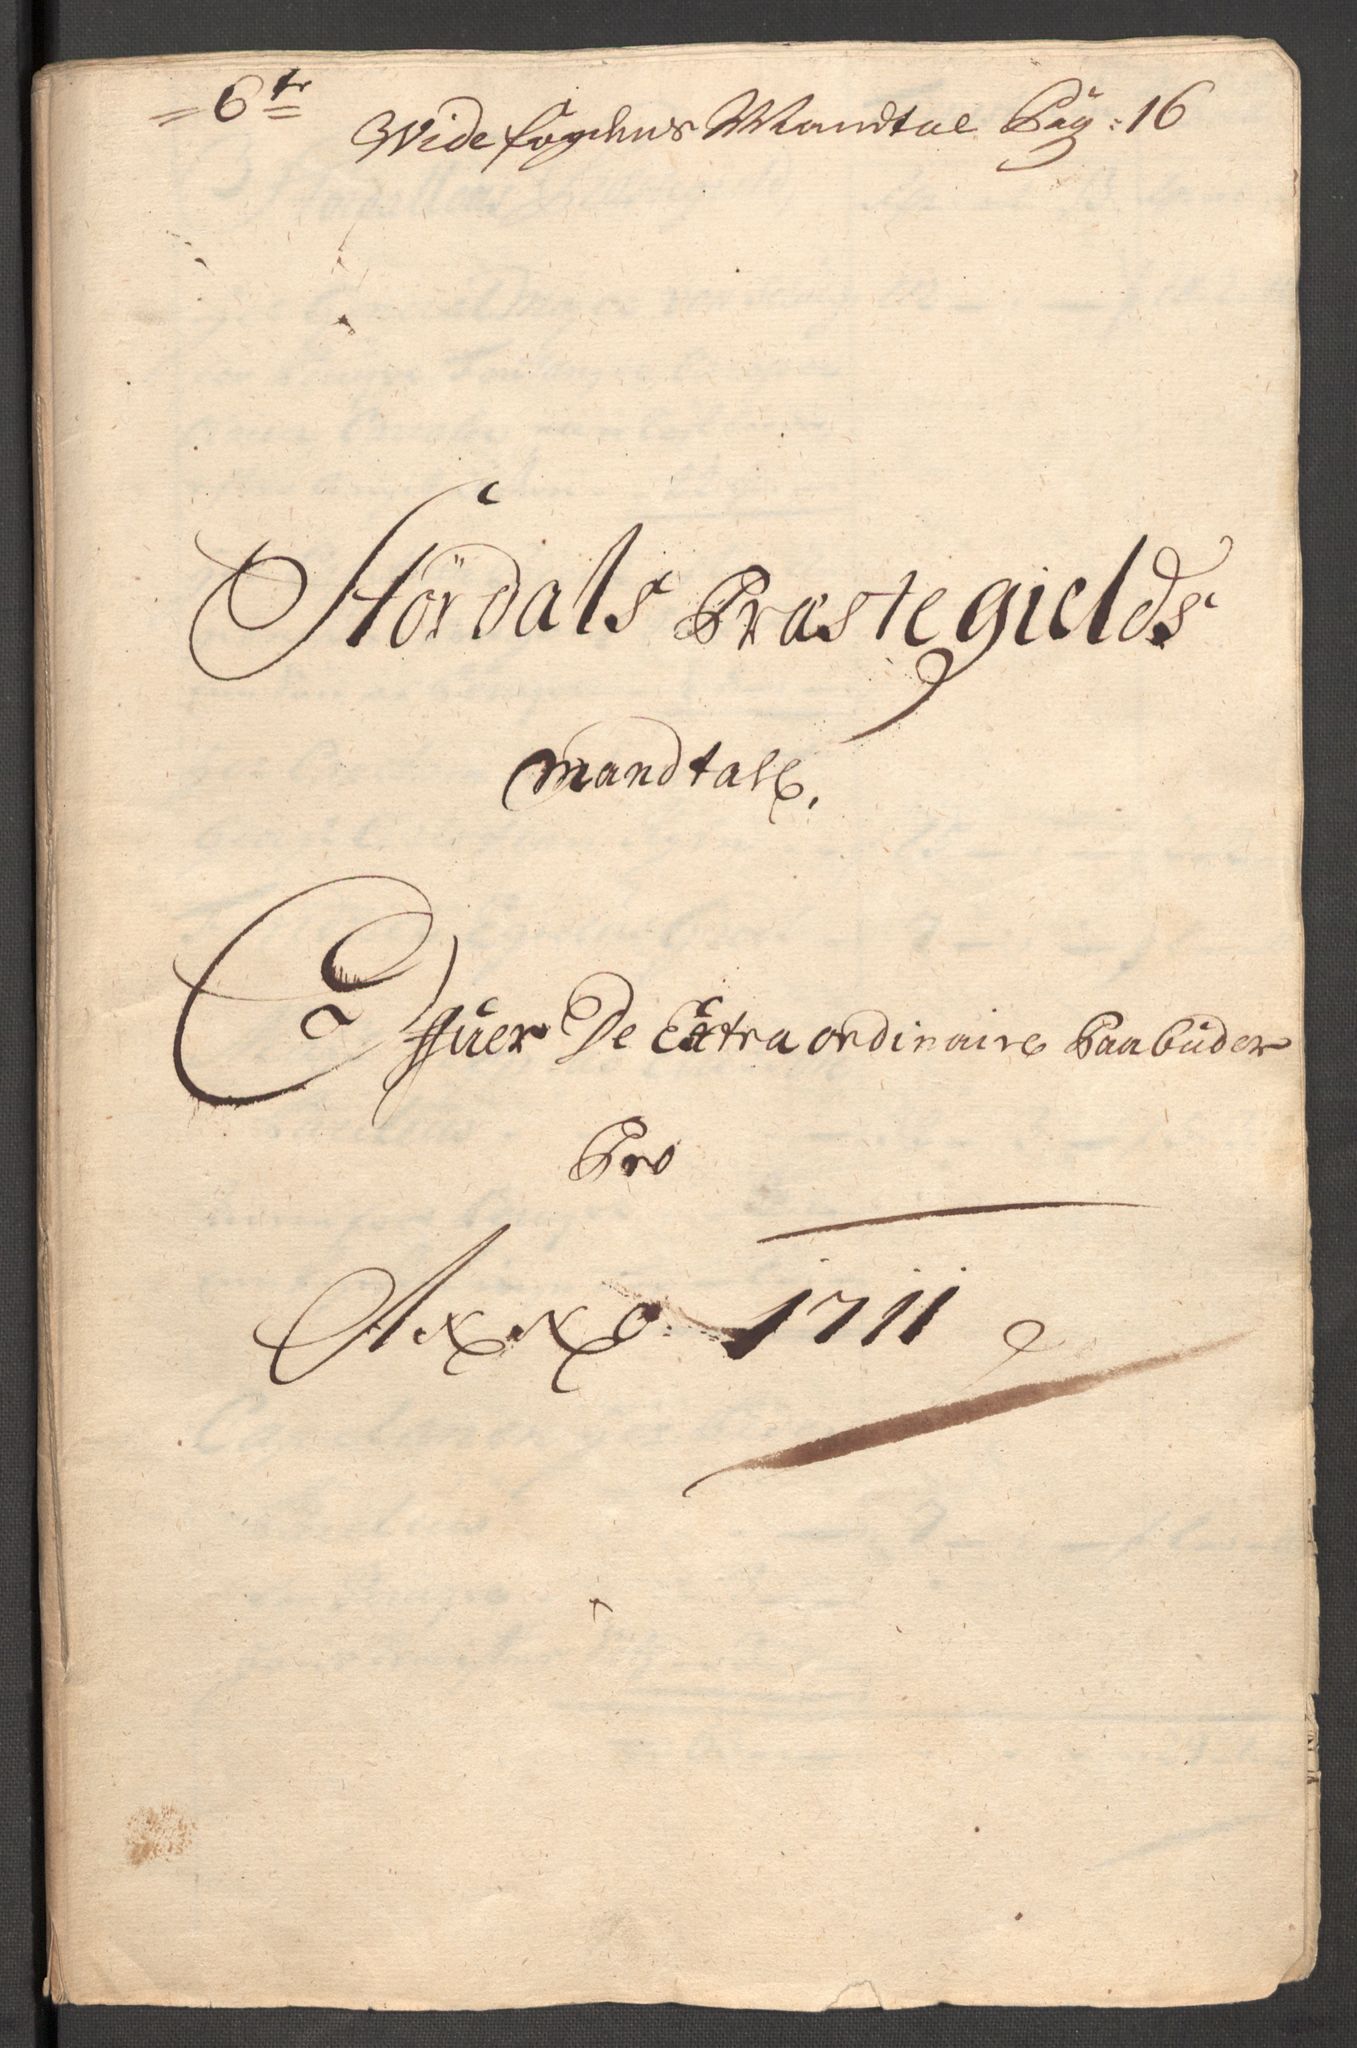 6tr
Wide fogdens Mandtal Pag: 16
Stördals Præstegields
mandtall,
Offuer De Extra ordinaire Paabuder
Pro
Anno 1711